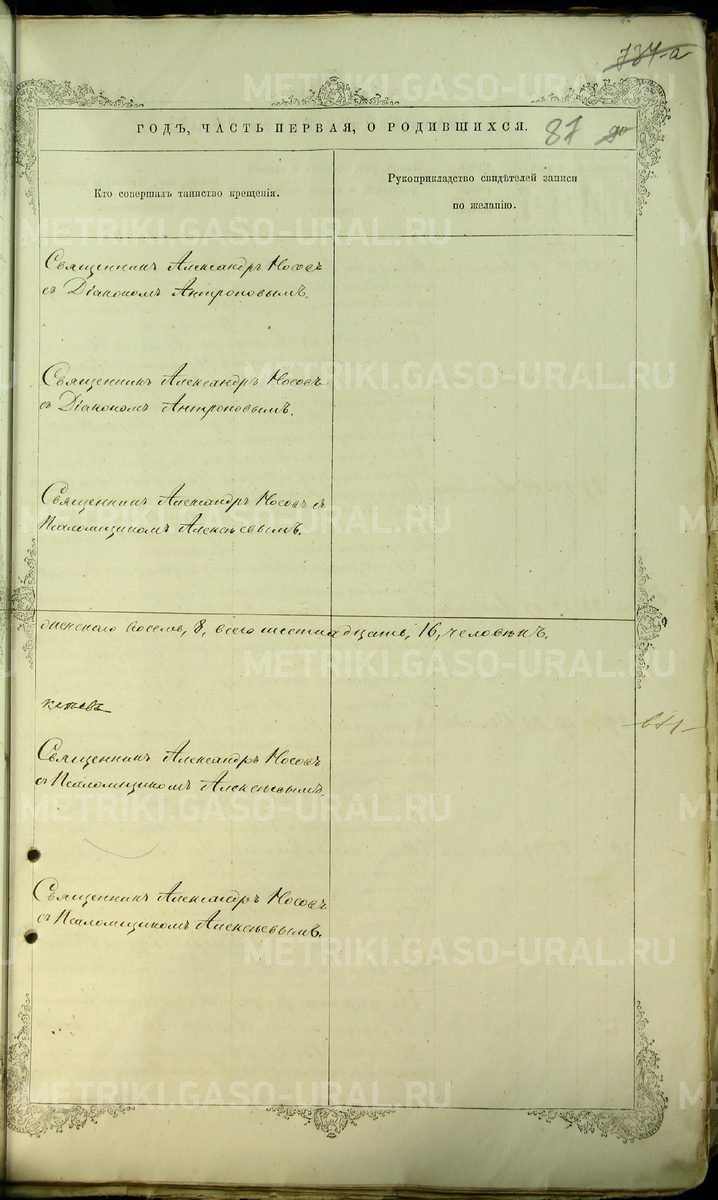 737-а
ГОДЪ, ЧАСТЬ ПЕРВАЯ, О РОДИВШИХСЯ.
87
Кто совершалъ таинство крещенія.
Рукоприкладство свидѣтелей записи
по желанію.
Священникъ Александръ Носовъ
съ Діакономъ Антроповымъ.
Священникъ Александръ Носовъ
съ Діакономъ Антроповымъ.
Священникъ Александръ Носовъ съ
Псаломщикомъ Алексѣевымъ.
женскаго восемь, 8, всего шестнадцать, 16, человѣкъ.
Священникъ Александръ Носовъ
съ Псаломщикомъ Алексѣевымъ.
Священникъ Александръ Носовъ
съ Псаломщикомъ Алексѣевымъ.
METRIKI.GASO-URAL.RU